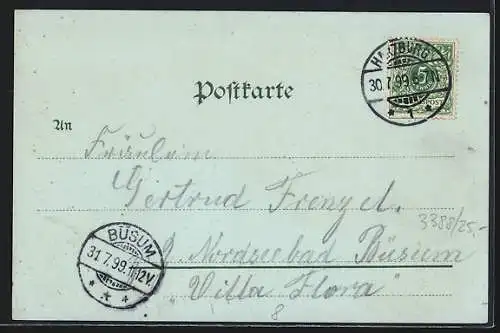 HARZBURG
30.7.99.
* 1 *
5
Postkarte
An
Fräulein
Gertrud Frenzel.
3388/25,-
Nordseebad Büsum
„Villa Flora"
8
BÜSUM
31.7.99.1112V.
* * *